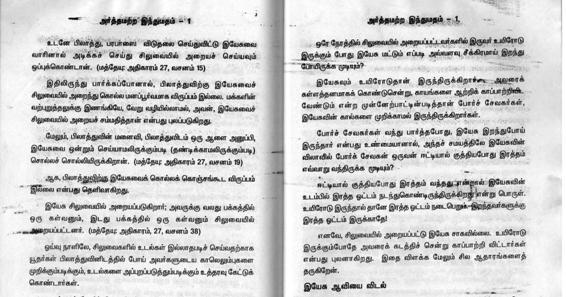 அர்த்தமற்ற இந்துமதம் – 1
உடனே பிலாத்து, பரபாஸை விடுதலை செய்துவிட்டு இயேசுவை
வாரினால் அடிக்கச் செய்து சிலுவையில் அறையச் செய்யவும்
ஒப்புக்கொண்டான். (மத்தேயு: அதிகாரம் 27, வசனம் 15)
இதிலிருந்து பார்க்கப்போனால், பிலாத்துவிற்கு இயேசுவைச்
சிலுவையில் அறைந்து கொல்ல மனப்பூர்வமாக விருப்பம் இல்லை. மக்களின்
வற்புறுத்தலுக்கு இணங்கியே, வேறு வழியில்லாமல், அவன், இயேசுவைச்
சிலுவையில் அறையச் சம்மதித்தான் என்பது புலப்படுகிறது.
மேலும், பிலாத்துவின் மனைவி, பிலாத்துவிடம் ஒரு ஆளை அனுப்பி,
இயேசுவை ஒன்றும் செய்யாமலிருக்கும்படி (தண்டிக்காமலிருக்கும்படி)
சொல்லச் சொல்லியிருக்கிறாள். (மத்தேயு: அதிகாரம் 27, வசனம் 19)
ஆக, பிலாத்துவிற்கு இயேசுவைக் கொல்லக் கொஞ்சங்கூட விருப்பம்
இல்லை என்பது தெளிவாகிறது.
இயேசு சிலுவையில் அறையப்படுகிறார்; அவருக்கு வலது பக்கத்தில்
ஒரு கள்வனும், இடது பக்கத்தில் ஒரு கள்வனும் சிலுவையில்
அறையப்பட்டனர். (மத்தேயு: அதிகாரம், 27, வசனம் 38)
ஓய்வு நாளிலே, சிலுவைகளில் உடல்கள் இல்லாதபடி செய்வதற்காக
யூதர்கள் பிலாத்துவினிடத்தில் போய் அவர்களுடைய காலெலும்புகளை
முறிக்கும்படிக்கும், உடல்களை அப்புறப்படுத்தும்படிக்கும் உத்தரவு கேட்டுக்
கொண்டார்கள்.
அர்த்தமற்ற இந்துமதம் – 1
ஒரே நேரத்தில் சிலுவையில் அறையப்பட்டவர்களில் இருவர் உயிரோடு
இருக்கும் போது இயேசு மட்டும் எப்படி அவ்வளவு சீக்கிரமாய் இறந்து
போயிருக்க முடியும்?
இயேசுவும் உயிரோடுதான் இருந்திருக்கிறார். அவரைக்
கள்ளத்தனமாகக் கொண்டுசென்று, காயங்களை ஆற்றிக் காப்பாற்றிவிட
வேண்டும் என்ற முன்னேற்பாட்டின்படித்தான் போர்ச் சேவகர்கள்,
இயேசுவின் கால்களை முறிக்காமல் இருந்திருக்கிறார்கள்.
போர்ச் சேவகர்கள் வந்து பார்த்தபோது, இயேசு இறந்துபோய்
இருந்தார் என்பது உண்மையானால், அந்தச் சமயத்திலே இயேசுவின்
விலாவில் போர்ச் சேவகன் ஒருவன் ஈட்டியால் குத்தியபோது இரத்தம்
எவ்வாறு வந்திருக்க முடியும்?
ஈட்டியால் குத்தியபோது இரத்தம் வந்தது என்றால் இயேசுவின்
உடம்பில் இரத்த ஓட்டம் நடந்துகொண்டிருந்திருக்கிறது என்று பொருள்.
உயிரோடு இருந்தால்தானே இரத்த ஓட்டம் நடைபெறும் இறந்தவர்களுக்கு
இரத்த ஓட்டம் இருக்காதே!
எனவே, சிலுவையில் அறையப்பட்டு இயேசு சாகவில்லை. உயிரோடு
இருக்கும்போதே அவரைக் கடத்திச் சென்று காப்பாற்றி விட்டார்கள்
என்பது புலனாகிறது. இதை விளக்க மேலும் சில ஆதாரங்களைத்
தருகிறேன்.
இயேசு ஆவியை விடல்